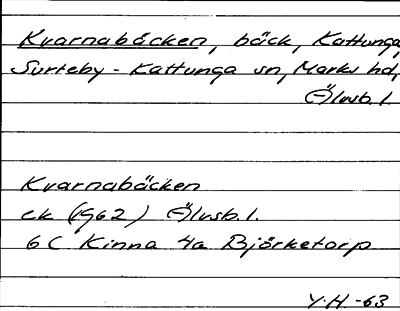 Kvarnabäcken, bäck, Kattunga,
Surteby-Kattunga sn, Marks hd,
Älvsb. l.
Kvarnabäcken
ek (1962) Älvsb. l.
6C Kinna 4a Björketorp
Y.H.-63